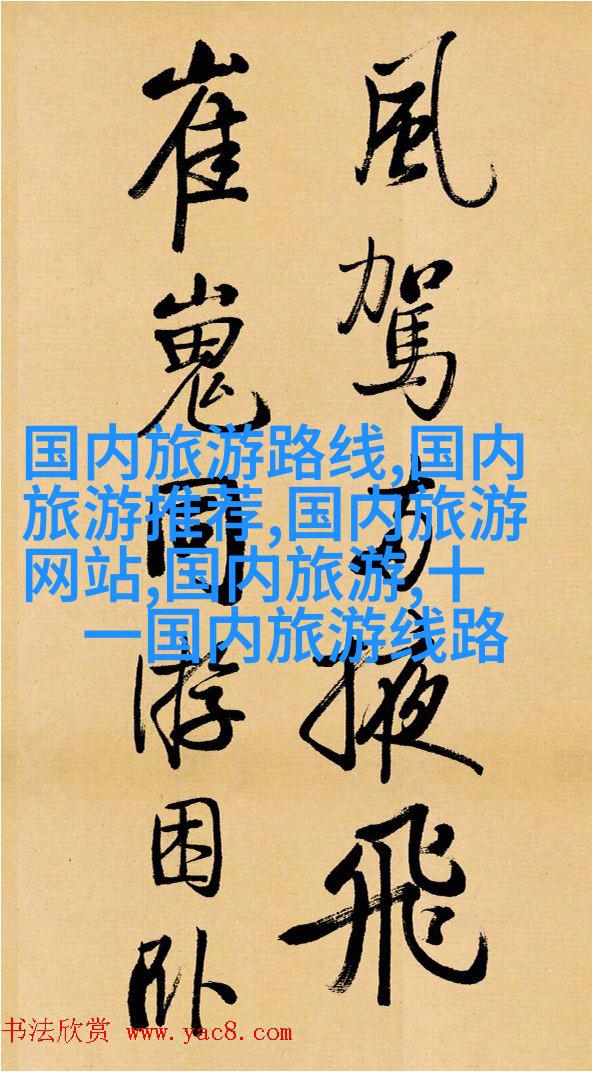 風駕掖飛
崔嵬同游困卧
国内旅游路线,国内
旅游推荐,国内旅游
网站,国内旅游,十
一国内旅游线路
书法欣赏 www.yac8.com